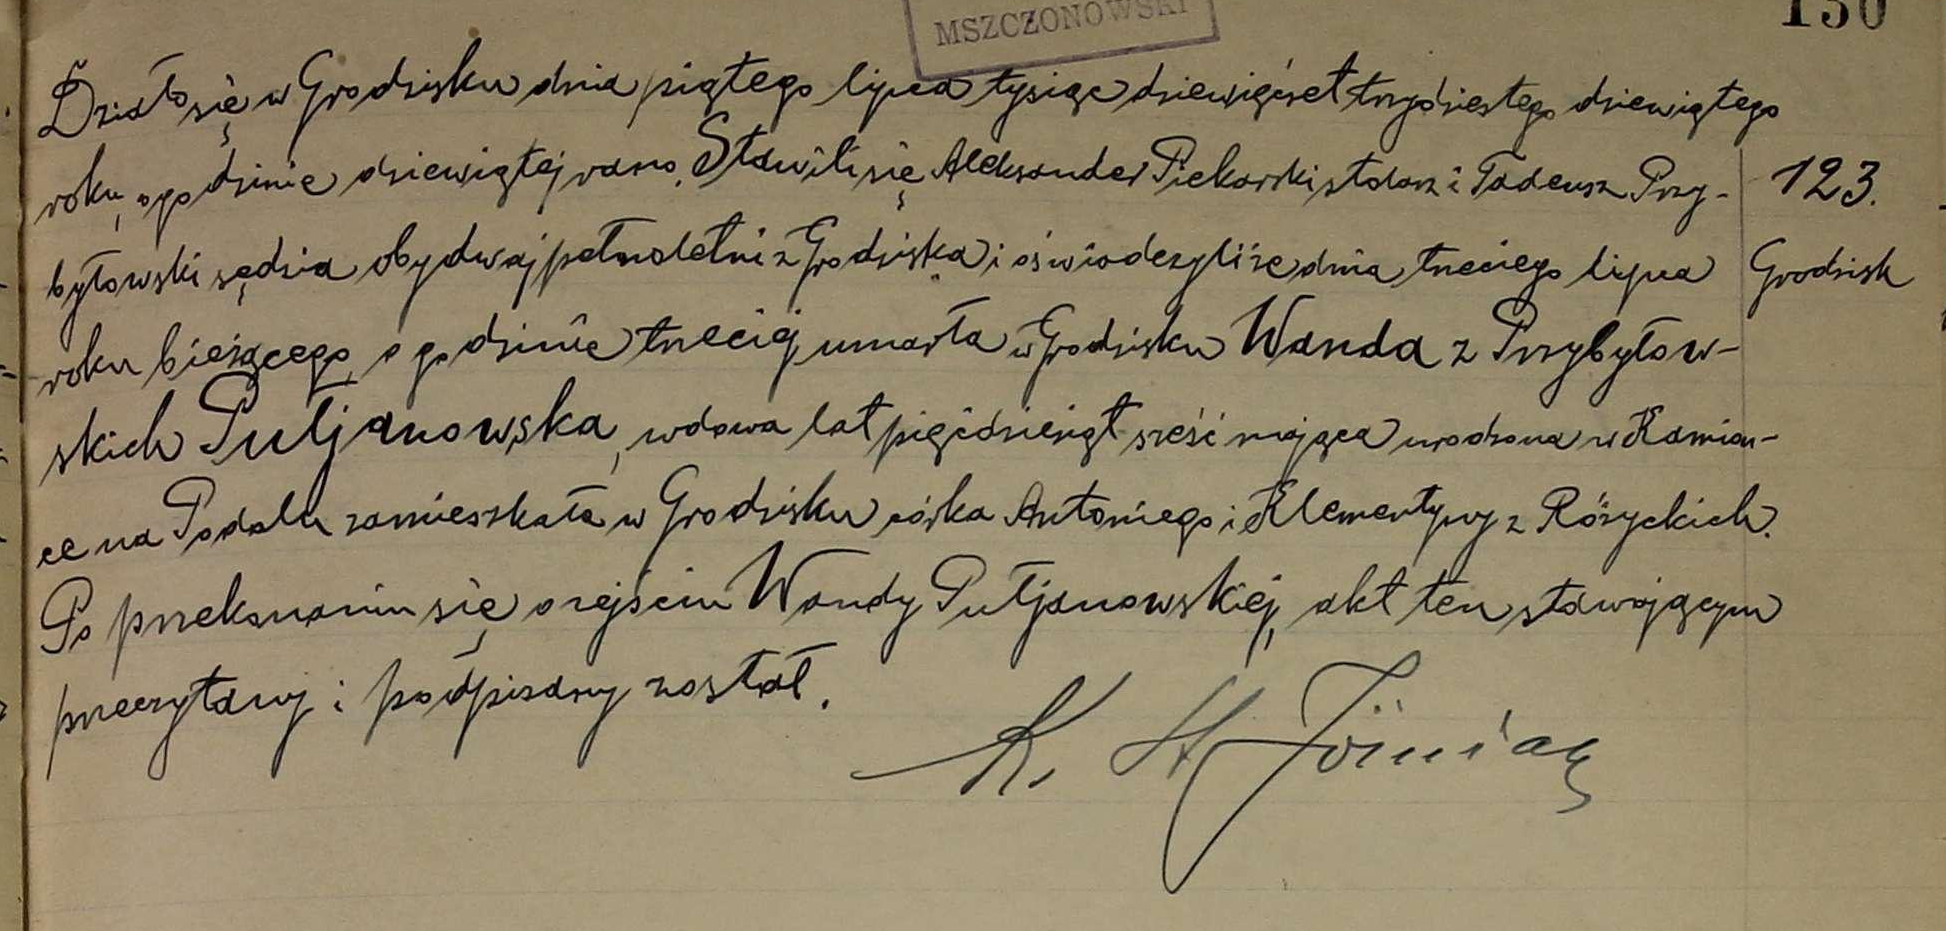 MSZCZONOWSKI
130
Działo się w Grodzisku dnia piątego lipca tysiąc dziewięćset trzydziestego dziewiątego
roku, o godzinie dziewiątej rano. Stawili się Aleksander Piekarski stolarz i Tadeusz Przy-
123.
byłowski sędzia obydwaj pełnoletni z Grodziska i oświadczyli że dnia trzeciego lipca
Grodzisk
roku bieżącego, o godzinie trzeciej umarła w Grodzisku Wanda z Przybyłow-
skich Putjanowska, wdowa lat pięćdziesiąt sześć mająca urodzona w Kamień-
ce na Podolu zamieszkała w Grodzisku córka Antoniego i Klementyny z Różyckich.
Po przekonaniu się o zejściu Wandy Putjanowskiej, akt ten stawającym
przeczytany i podpisany został.
K.